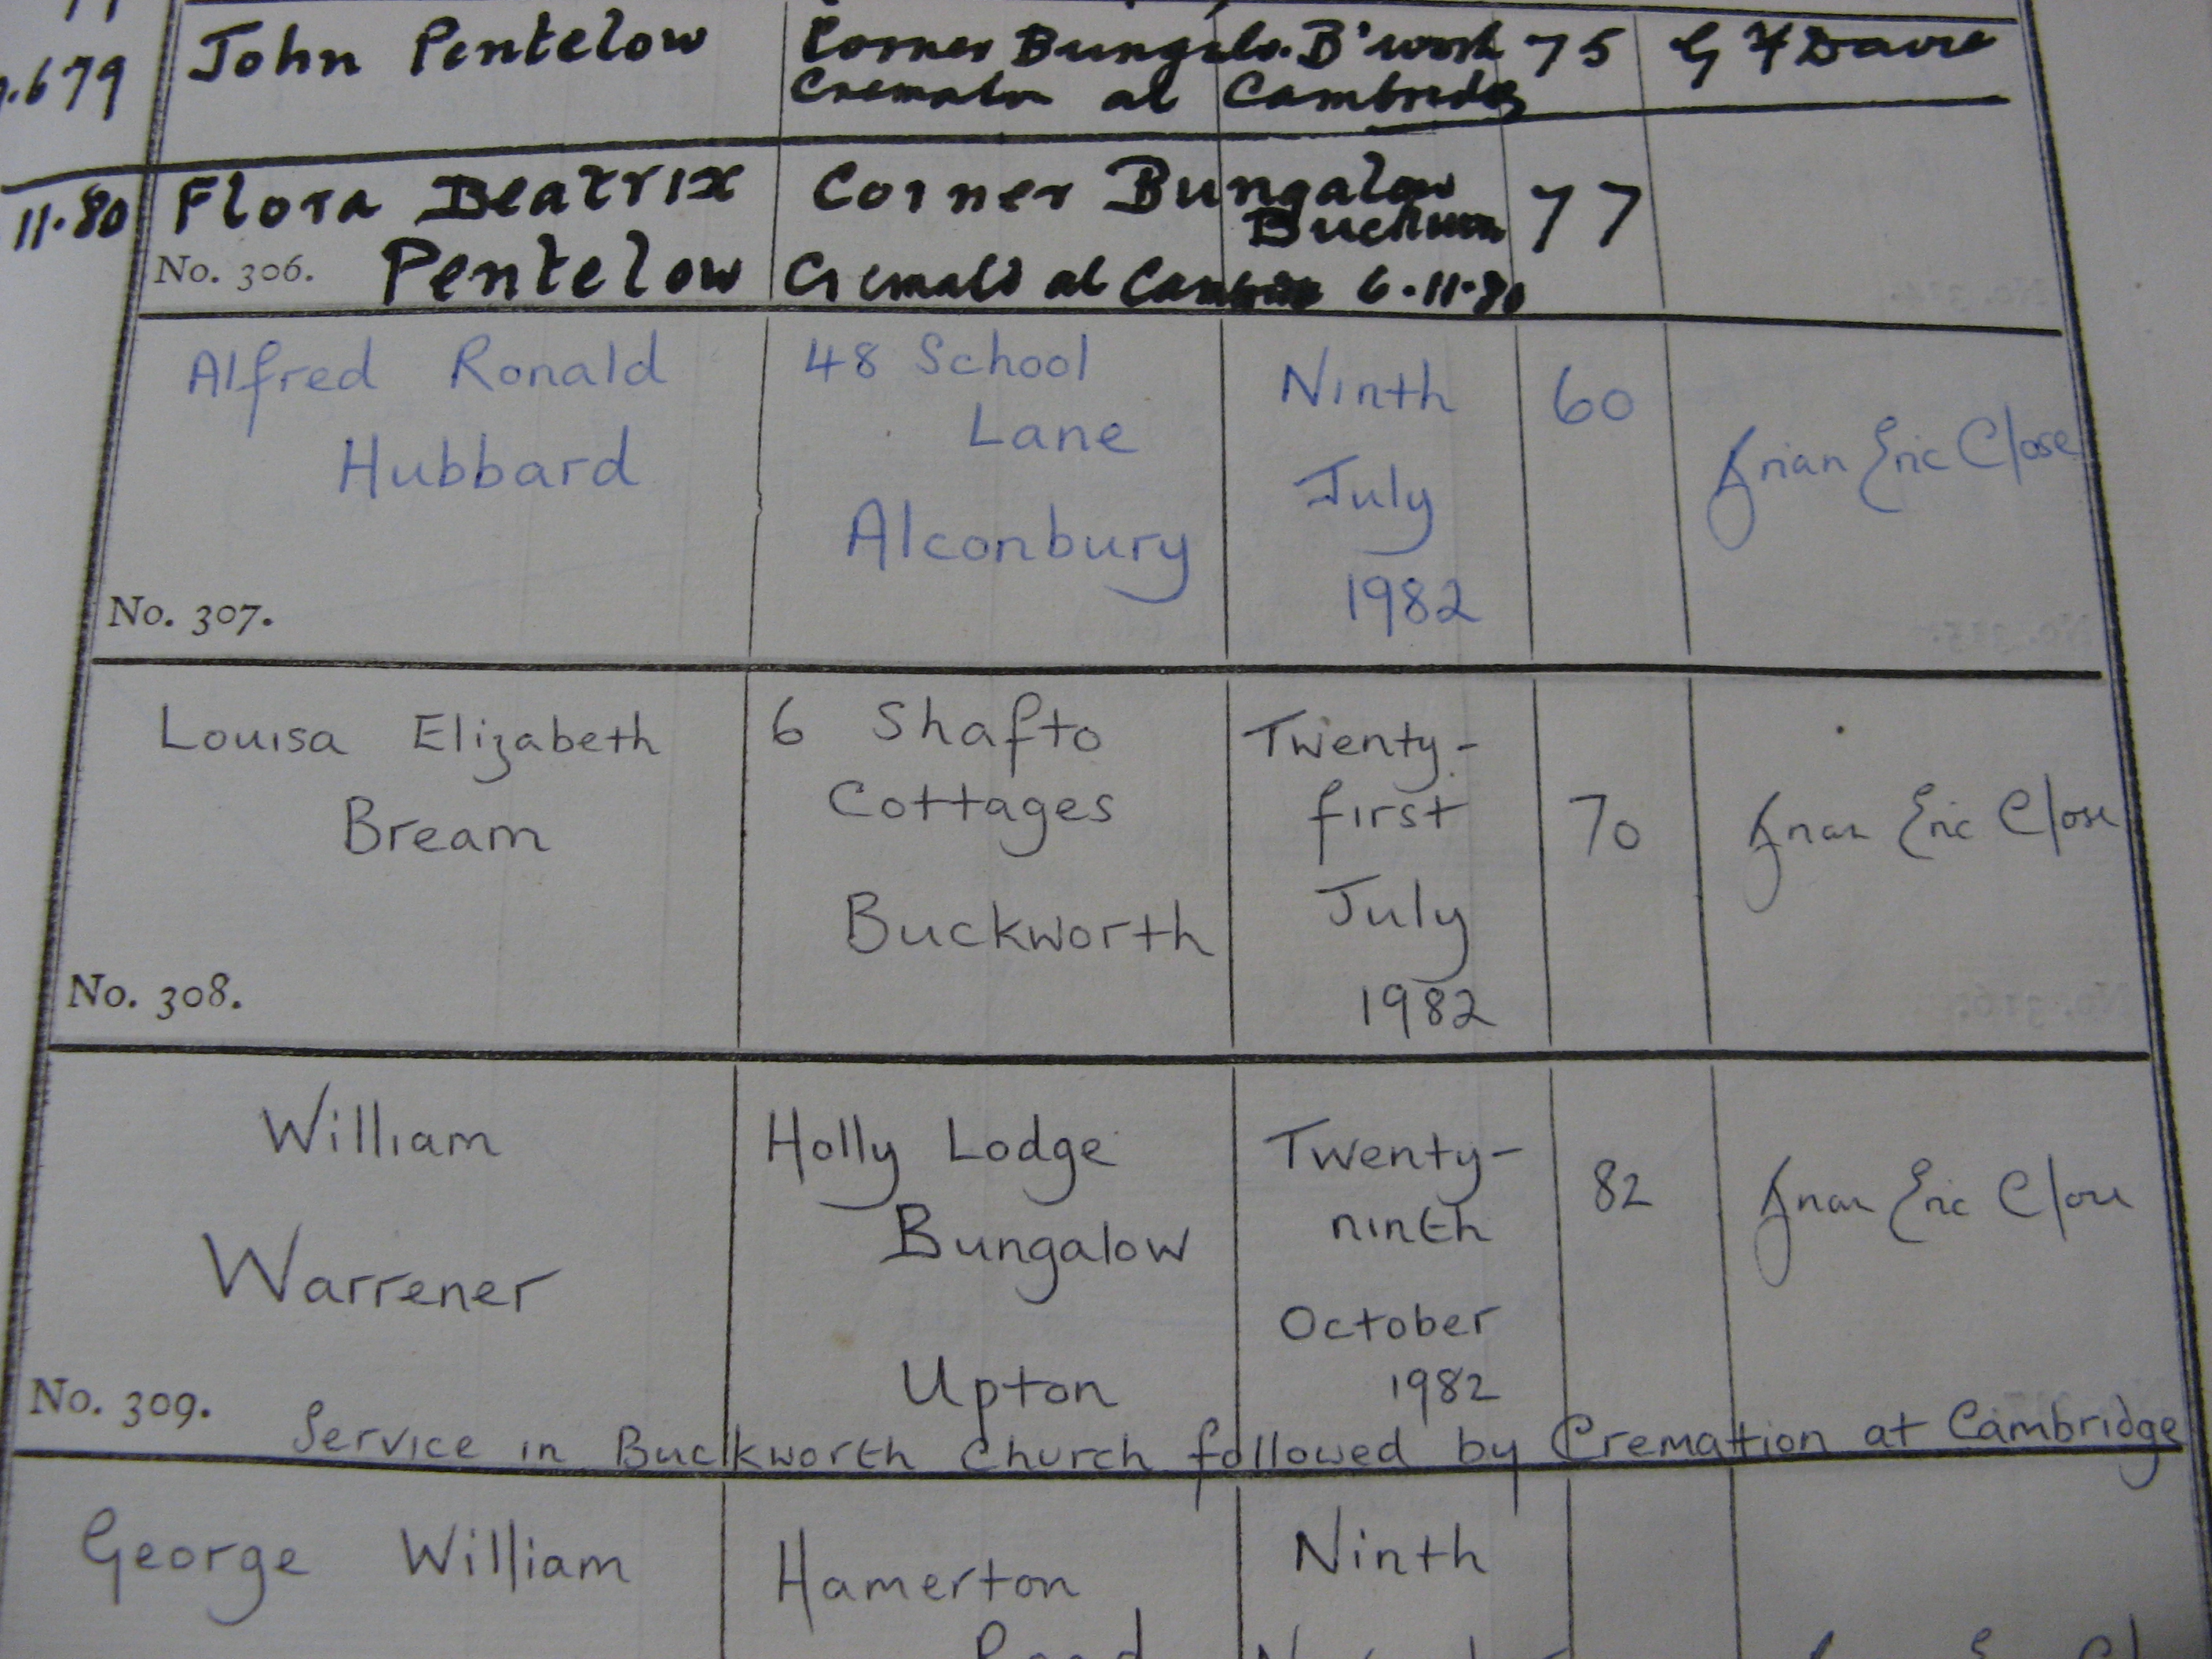 .679 John Pentelow Corner Bungalo. B'worth 75 G F Davie
Cremation at Cambridge
11.80 Flora Beatrix Corner Bungalow 77
No. 306. Pentelow at 6.11.80
Alfred Ronald 48 School Ninth 60
Hubbard Lane July Brian Eric Close
Alconbury 1982
No. 307.
Louisa Elizabeth 6 Shafto Twenty-
Bream Cottages first 70 Brian Eric Close
Buckworth July
No. 308. 1982
William Holly Lodge Twenty- 82 Brian Eric Close
Warrener Bungalow ninth
October
Upton 1982
No. 309. Service in Buckworth Church followed by Cremation at Cambridge
George William Hamerton Ninth
Road